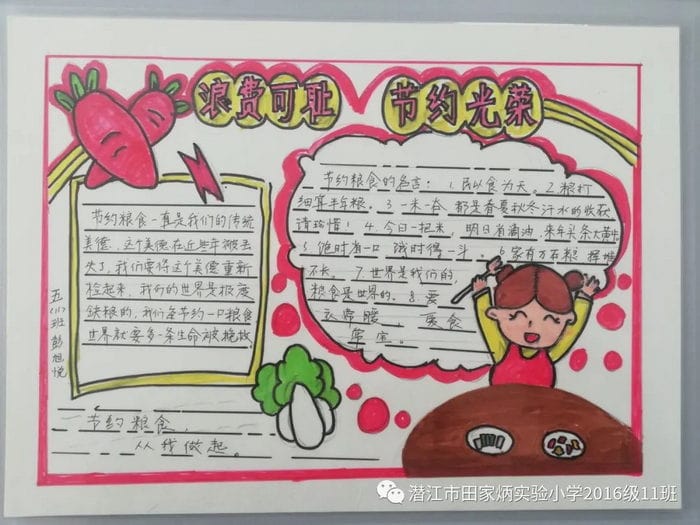 浪费可耻 节约光荣
节约粮食一直是我们的传统
美德，这个美德在近些年被丢
失了，我们要将这个美德重新
捡起来，我们的世界是极度
缺粮的，我们每节约一口粮食
世界就要多一条生命被挽救
五（11）班 彭旭悦
节约粮食，
从我做起。
节约粮食的名言：1.民以食为天。2.粮打
细算半年粮。3.一米一谷，都是春夏秋冬汗水的收获
请珍惜！4.今日一把米，明日有滴油，来年买条大黄牛
5.饱时有一口 饿时得一斗。6.家有万石粮 挥堆
不长。7.世界是我们的，
粮食是世界的。8.爱
衣常暖，爱食
常宝。
潜江市田家炳实验小学2016级11班